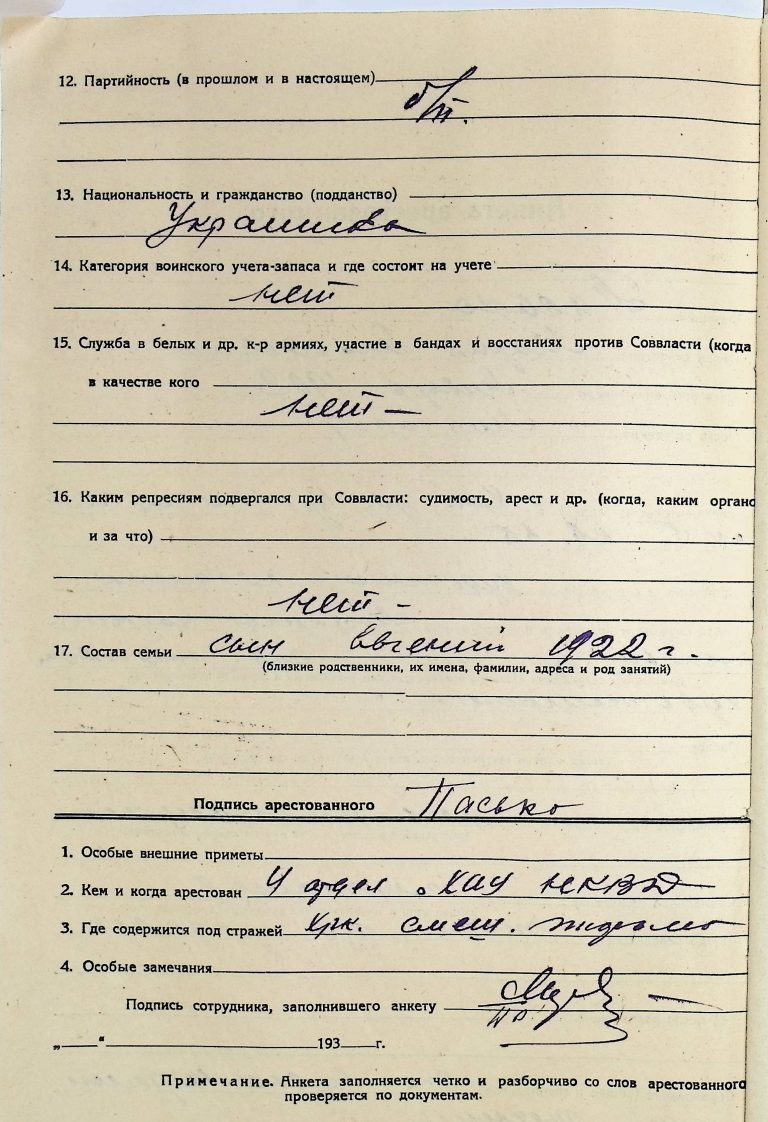 12. Партийность (в прошлом и в настоящем)
б/п.
13. Национальность и гражданство (подданство)
Украинка
14. Категория воинского учета-запаса и где состоит на учете
нет
15. Служба в белых и др. к-р армиях, участие в бандах и восстаниях против Соввласти (когда
в качестве кого
нет —
16. Каким репресиям подвергался при Соввласти: судимость, арест и др. (когда, каким органо
и за что)
нет -
17. Состав семьи сын Евгений 1922 г.
(близкие родственники, их имена, фамилии, адреса и род занятий)
Подпись арестованного Пасько
1. Особые внешние приметы
2. Кем и когда арестован 4 отдел ХОУ НКВД
3. Где содержится под стражей Хрк.
4. Особые замечания
Подпись сотрудника, заполнившего анкету
„ “ 193 г.
Примечание. Анкета заполняется четко и разборчиво со слов арестованного
проверяется по документам.